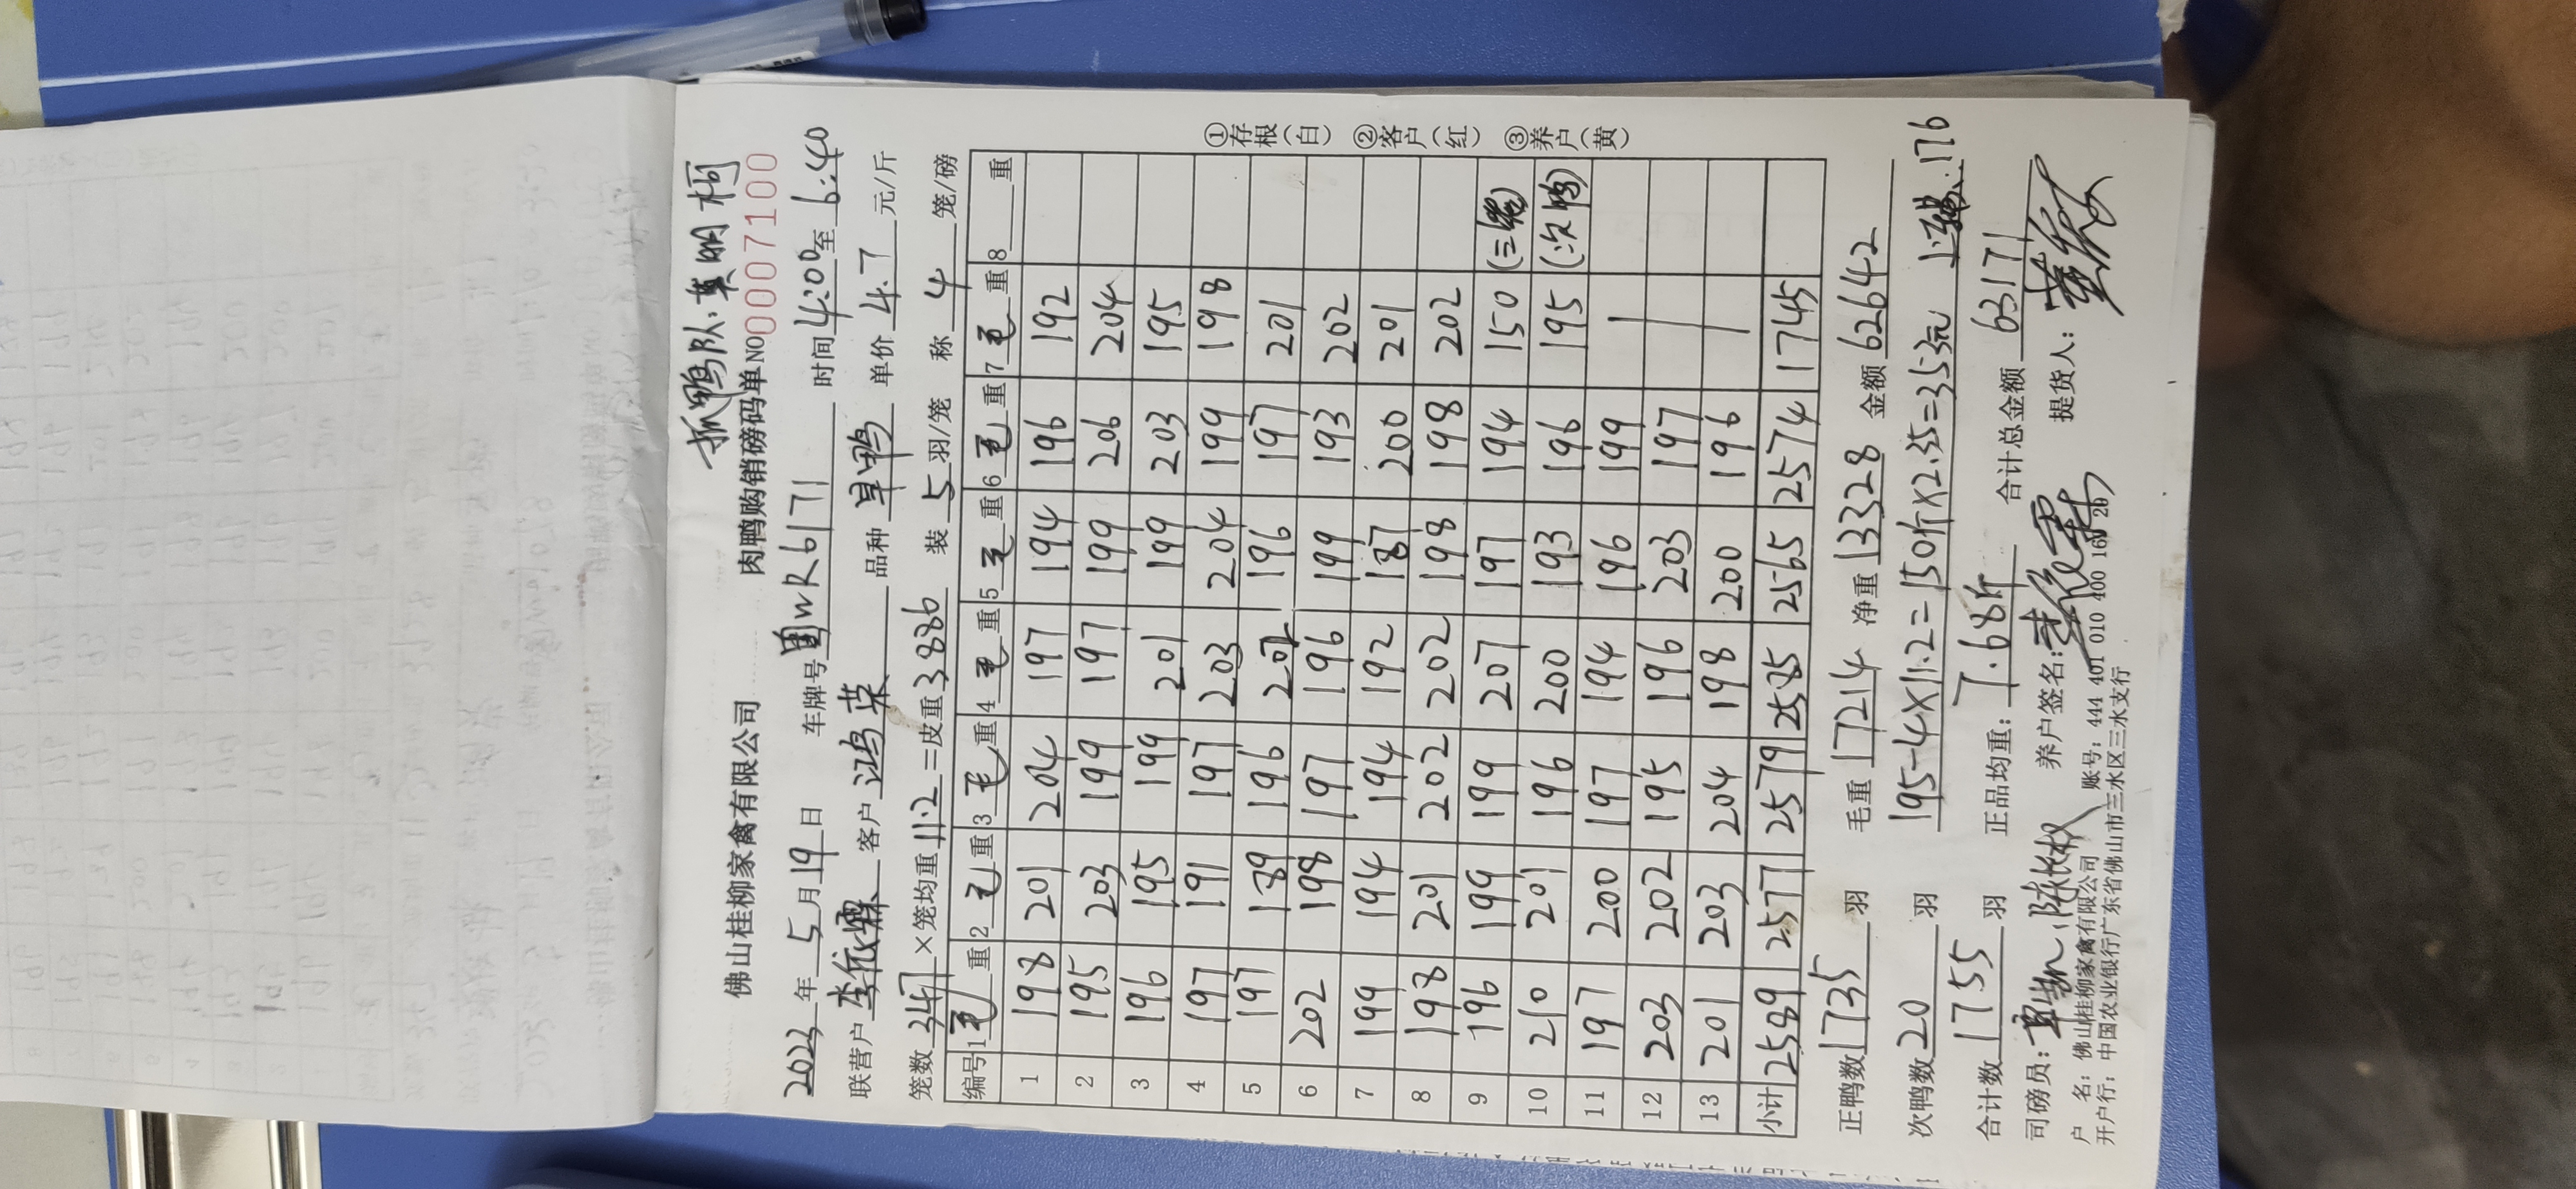 抓鸭队:莫明柯
佛山桂柳家禽有限公司 肉鸭购销磅码单 NO 0007100
2023年5月19日 车牌号粤WR6171 时间4:00至6:40
联营户李依霖 客户鸿荣 品种旱鸭 单价4.7元/斤
笼数347×笼均重11.2=皮重3886 装5羽/笼 称4笼/磅
编号 1毛重 2毛重 3毛重 4毛重 5毛重 6毛重 7毛重 8重
1 198 201 204 197 194 196 192
2 195 203 199 197 199 206 204
3 196 195 199 201 199 203 195
4 197 191 197 203 204 199 198
5 197 189 196 202 196 197 201
6 202 198 197 196 199 193 202
7 199 194 194 192 187 200 201
8 198 201 202 202 198 198 202
9 196 199 199 207 197 194 150 (三笼)
10 210 201 196 200 193 196 195 (次鸭)
11 197 200 197 194 196 199
12 203 202 195 196 203 197
13 201 203 204 198 200 196
小计 2589 2577 2579 2585 2565 2574 1745
①存根(白) ②客户(红) ③养户(黄)
正鸭数1735羽 毛重17214 净重13328 金额62642
次鸭数20羽 195-4×11.2=150斤×2.35=353元 :176
合计数1755羽 正品均重:7.68斤 合计总金额63171
司磅员: 养户签名: 提货人:
户 名:佛山桂柳家禽有限公司 账号:444 401 010 400 169 20
开户行:中国农业银行广东省佛山市三水区三水支行